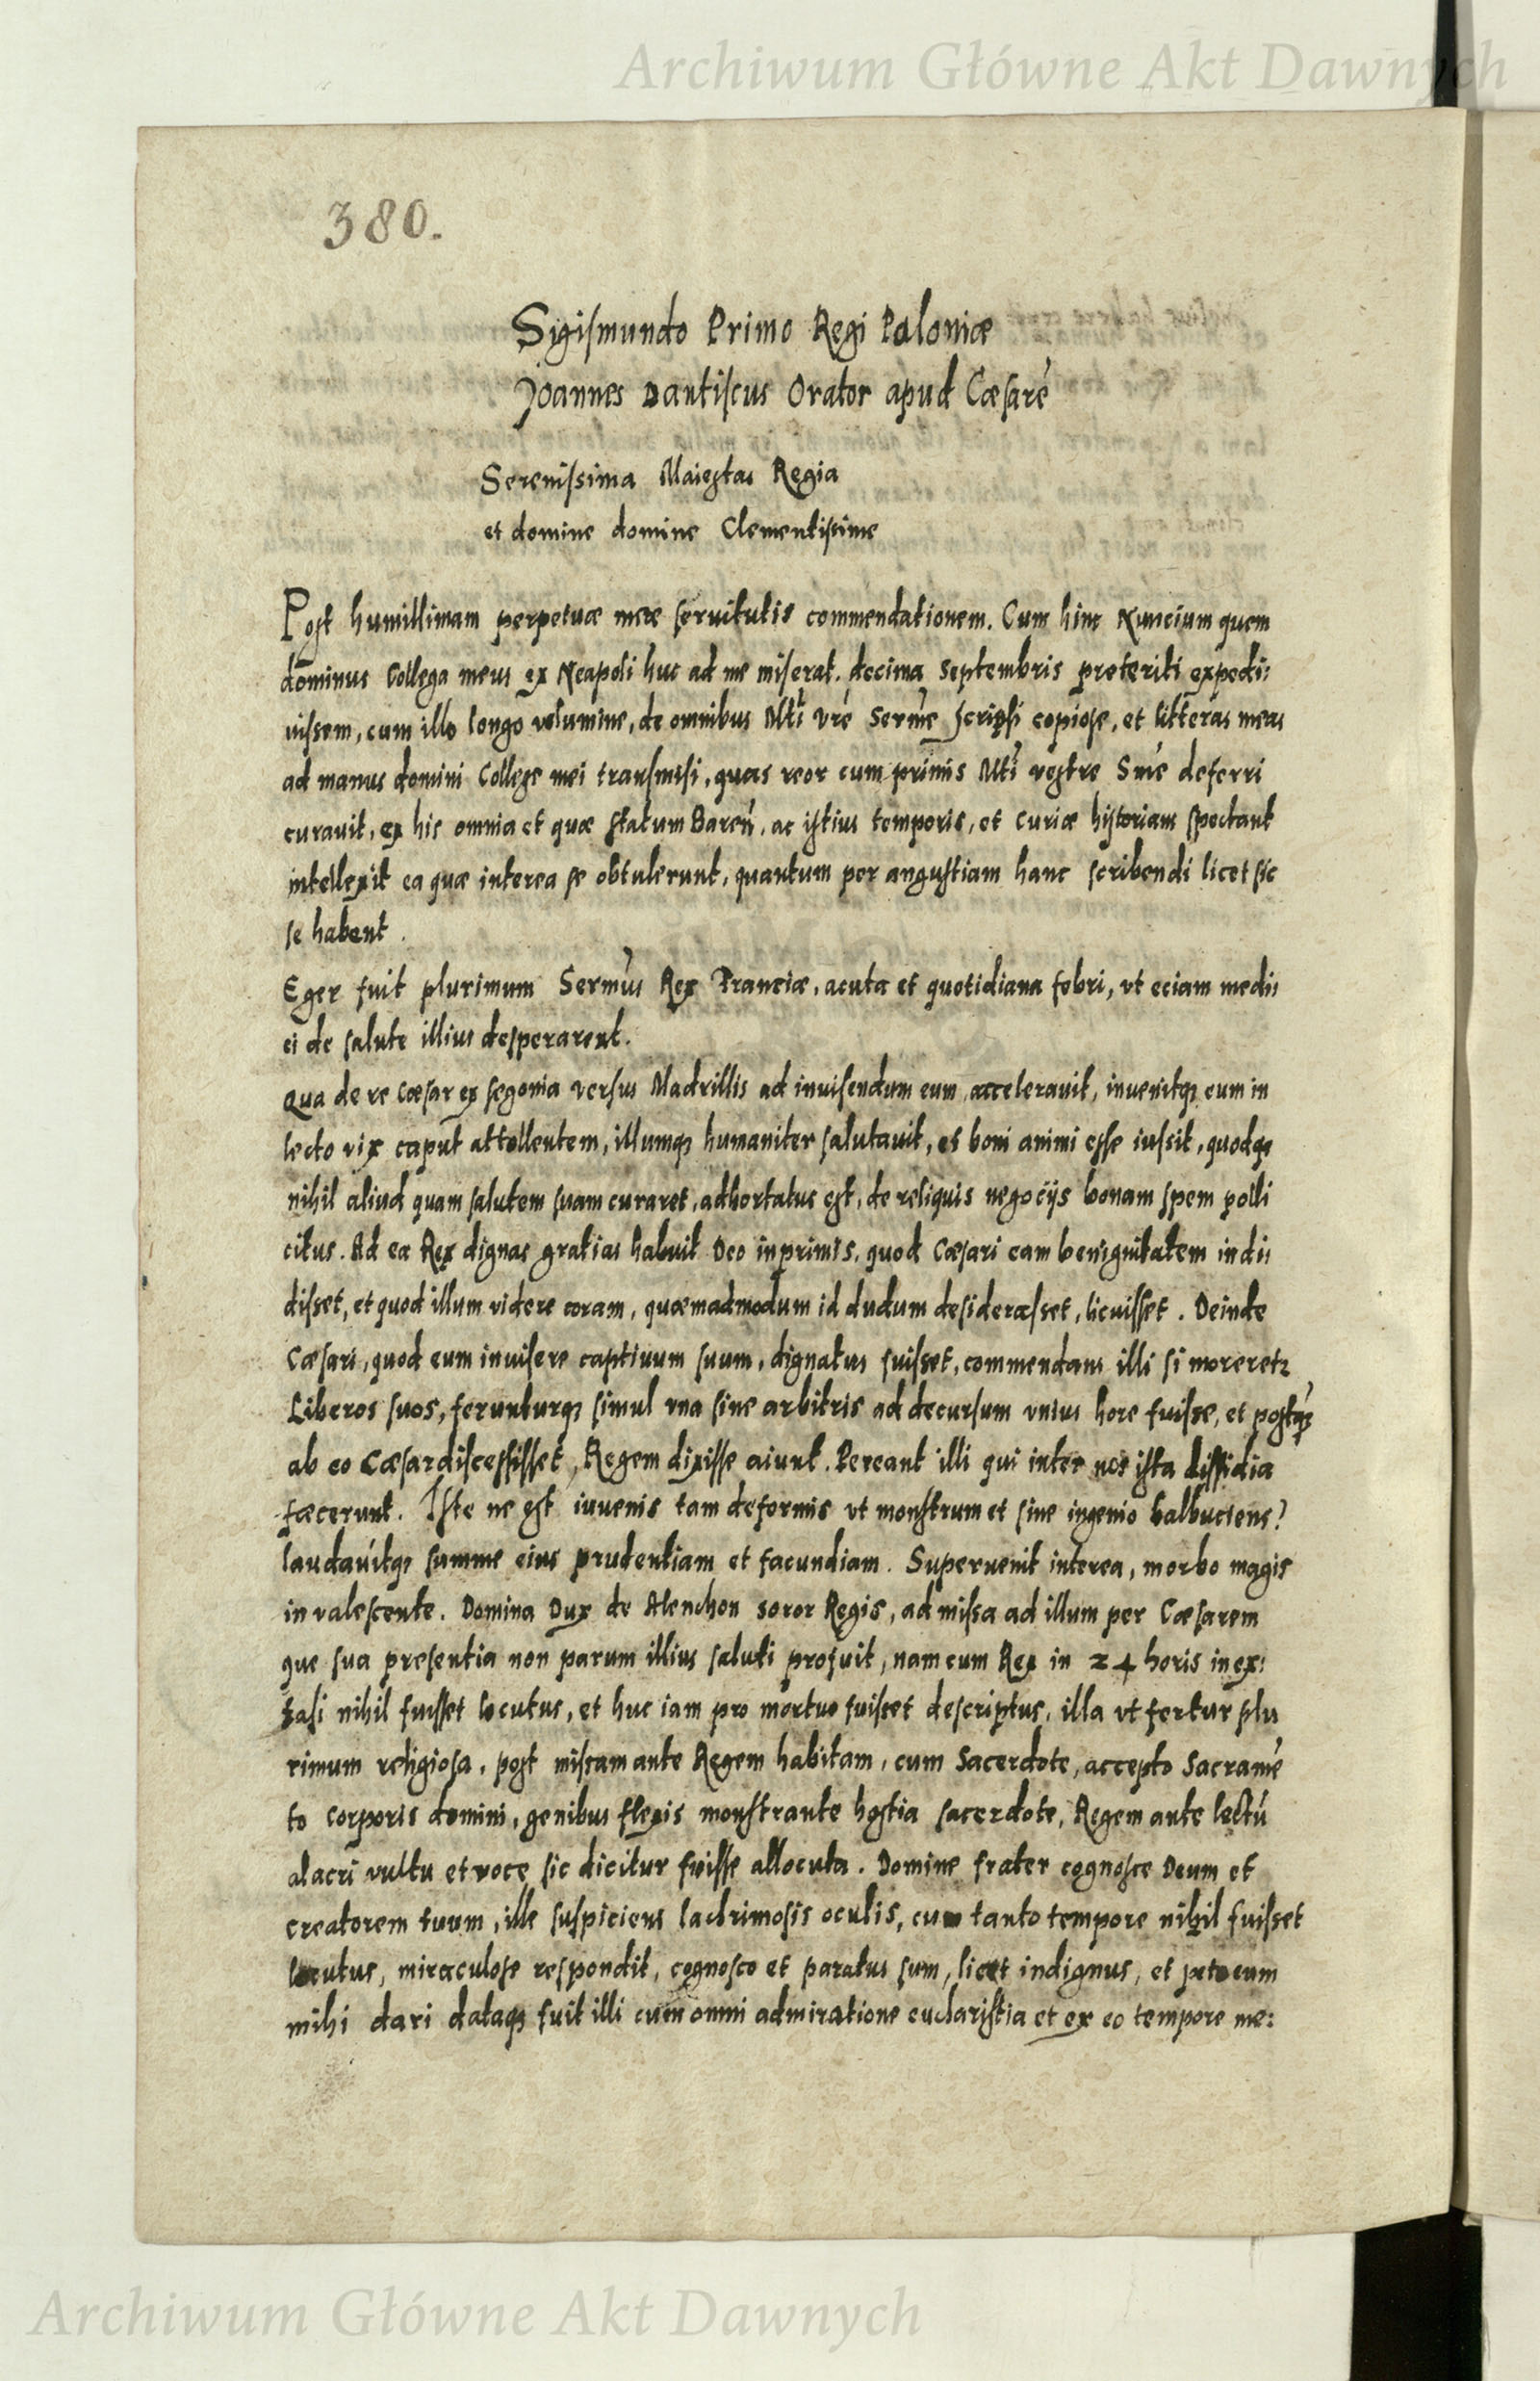 Archiwum Główne Akt Dawnych
380.
Sigismundo Primo Regi Poloniæ
Joannes Dantiscus Orator apud Cæsarē
Serenissima Maiestas Regia
et domine domine Clementissime
Post humillimam perpetuæ meæ servitutis commendationem. Cum hinc Nuncium quem
dominus Collega meus ex Neapoli huc ad me miserat. decima Septembris preteriti expedi:
vissem, cum illo longo volumine, de omnibus Mti Vre Serme scripsi copiose, et litteras meas
ad manus domini College mei transmisi, quas reor cum primis Mti vestre Sme deferri
curavit, ex his omnia et quæ statum Baren, ac istius temporis, et Curiæ historiam spectant
intellexit ea quæ interea se obtulerunt, quantum per angustiam hanc scribendi licet sic
se habent.
Eger fuit plurimum Sermus Rex Franciæ, acuta et quotidiana febri, vt eciam medii
ci de salute illius desperarent.
Qua de re Cæsar ex segovia versus Madrillis ad invisendum eum acceleravit, invenitq; eum in
lecto vix caput attollentem, illumq; humaniter salutavit, et boni animi esse iussit, quodq;
nihil aliud quam salutem suam curaret, adhortatus est, de reliquis negociis bonam spem polli
citus. Ad ea Rex dignas gratias habuit Deo inprimis, quod Cæsari eam benignitatem indi:
disset, et quod illum videre coram, quæmadmodum id dudum desiderasset, licuisset. Deinde
Cæsari, quod eum invisere captivum suum, dignatus fuisset, commendans illi si moreretz
Liberos suos, ferunturq; simul vna sine arbitris ad decursum vnius hore fuisse, et postq̃
ab eo Cæsar discessisset, Regem dixisse aiunt. Pereant illi qui inter nos ista dissidia
fæcerunt. Iste ne est iuvenis tam deformis vt monstrum et sine ingenio balbuciens?
laudavitq; summe eius prudentiam et facundiam. Supervenit interea, morbo magis
invalescente. Domina Dux de Alenchon soror Regis, admissa ad illum per Cæsarem
que sua presentia non parum illius saluti profuit, nam cum Rex in 24 horis in ex:
tasi nihil fuisset locutus, et huc iam pro mortuo fuisset descriptus, illa vt fertur plu
rimum religiosa, post missam ante Regem habitam, cum Sacerdote, accepto Sacramē
to corporis domini, genibus flexis monstrante hostia sacerdote, Regem ante lectū
alacri vultu et voce sic dicitur fuisse allocuta. Domine frater cognosce Deum et
creatorem tuum, ille suspiciens lachrimosis oculis, cum tanto tempore nihil fuisset
locutus, miraculose respondit, cognosco et paratus sum, licet indignus, et peto eum
mihi dari dataq; fuit illi cum omni admiratione eucharistia et ex eo tempore me:
Archiwum Główne Akt Dawnych